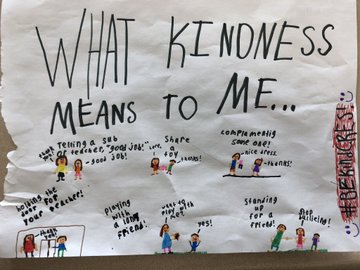 WHAT KINDNESS
MEANS TO ME...
Telling a sub
or teacher, "good job!"
-good job!
Share
a toy
thanks!
complamentig
some one!
nice dress.
-thanks!
holding the
door FOR
your teacher!
thank
you!
playing
with a
friend!
want to
play with
me?
yes!
Standing
up for a
friend!
stop
bullying!